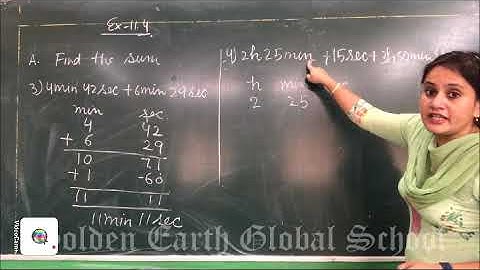 Ex-11.4
A. Find the sum
3) 4min 42sec + 6min 29sec
min sec
4 42
+ 6 29
10 71
+ 1 -60
11 11
11 min 11 sec
4) 2h 25min +15sec+
h
2 25
Golden Earth Global School